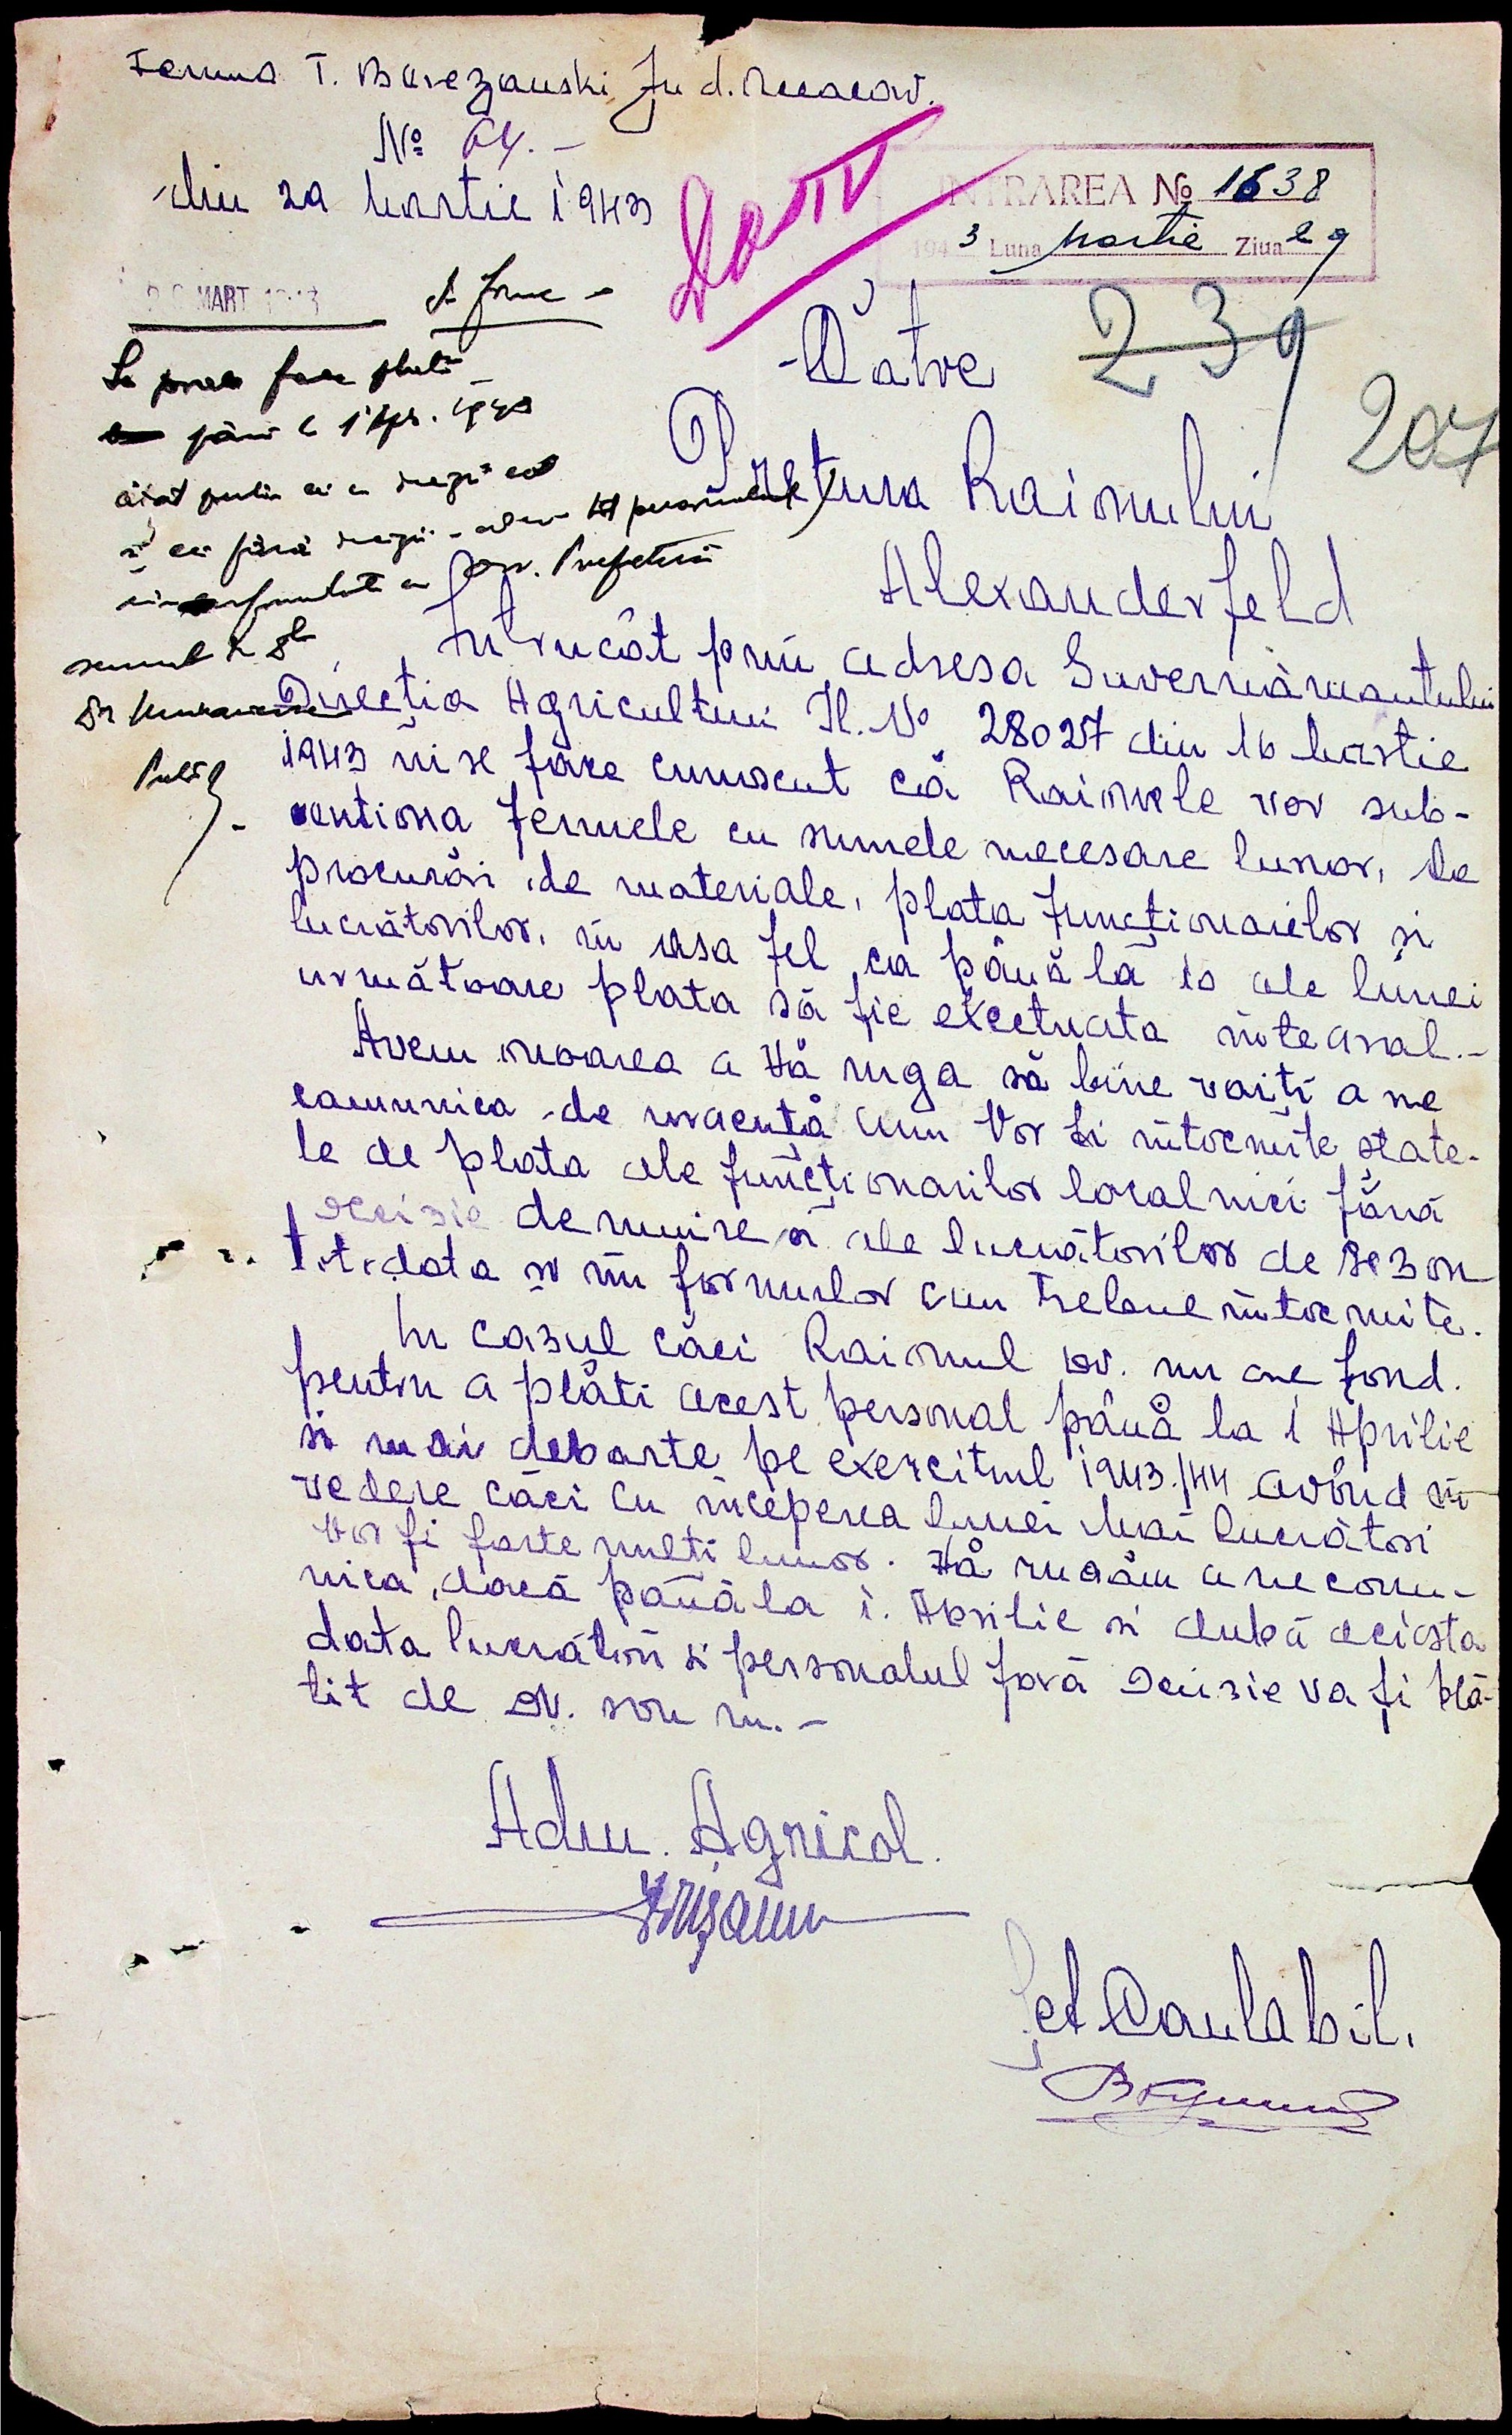 Ferma T. Berezanski Jud. Oceacov.
№ 64. -
din 29 Martie 1943
INTRAREA № 1638
1943 Luna Martie Ziua 29
MART 1943
Se poate face plata
până la 1 Apr. 1943
atât pentru cei cu
și cei fără
Prefecturii
Către
239
207
Pretura Raionului
Alexanderfeld
Întrucât prin adresa Guvernămantului
Direcția Agriculturii H. No 28027 din 16 Martie
1943 ni se face cunoscut că Raionele vor sub-
ventiona fermele cu sumele necesare lunar, de
procurări de materiale, plata funcționarilor si
lucrătorilor, în asa fel ca până la 10 ale lunei
următoare plata să fie efectuata integral. -
Avem onoarea a Vă ruga să bine voiți a ne
comunica de urgență cum Vor fi intocmite state-
le de plata ale funcționarilor localnici fără
decizie de numire și ale lucrătorilor de sezon
tot odata si un formular cum trebue intocmite.
In cazul căci Raionul dv. nu are fond.
pentru a plăti acest personal până la 1 Aprilie
si mai departe pe exercitiul 1943/44 având în
vedere căci cu inceperea lunei Mai lucrători
Vor fi foarte multi lunar. Vă rugăm a ne comu-
nica, dacă până la 1. Aprilie si după aciasta
data lucrători si personalul fară decizie va fi plă-
tit de DV. sau nu. -
Adm. Agricol.
Șef Contabil.